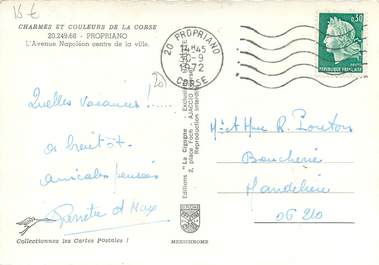 15 €
CHARMES ET COULEURS DE LA CORSE
20.249.68 - PROPRIANO
L'Avenue Napoléon centre de la ville.
20 PROPRIANO
14H45
30-9
1972
CORSE
0,30
REPUBLIQUE FRANÇAISE
Quelles vacances! ......
a bientôt
amicales pensées
Pierrette et Max
Editions "La Cigogne" - Exclusivité
2, place Foch - AJACCIO
Reproduction interdite
Mr et Mme R.
Boucherie
Mandelieu
06 210
Collectionnez les Cartes Postales !
MEXICHROME